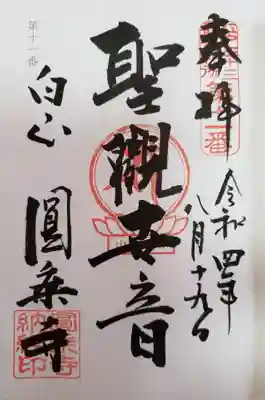 奉拝
令和四年
八月十九日
聖觀世音
第十一番
白山
圓乗寺
圓乗寺
納経印